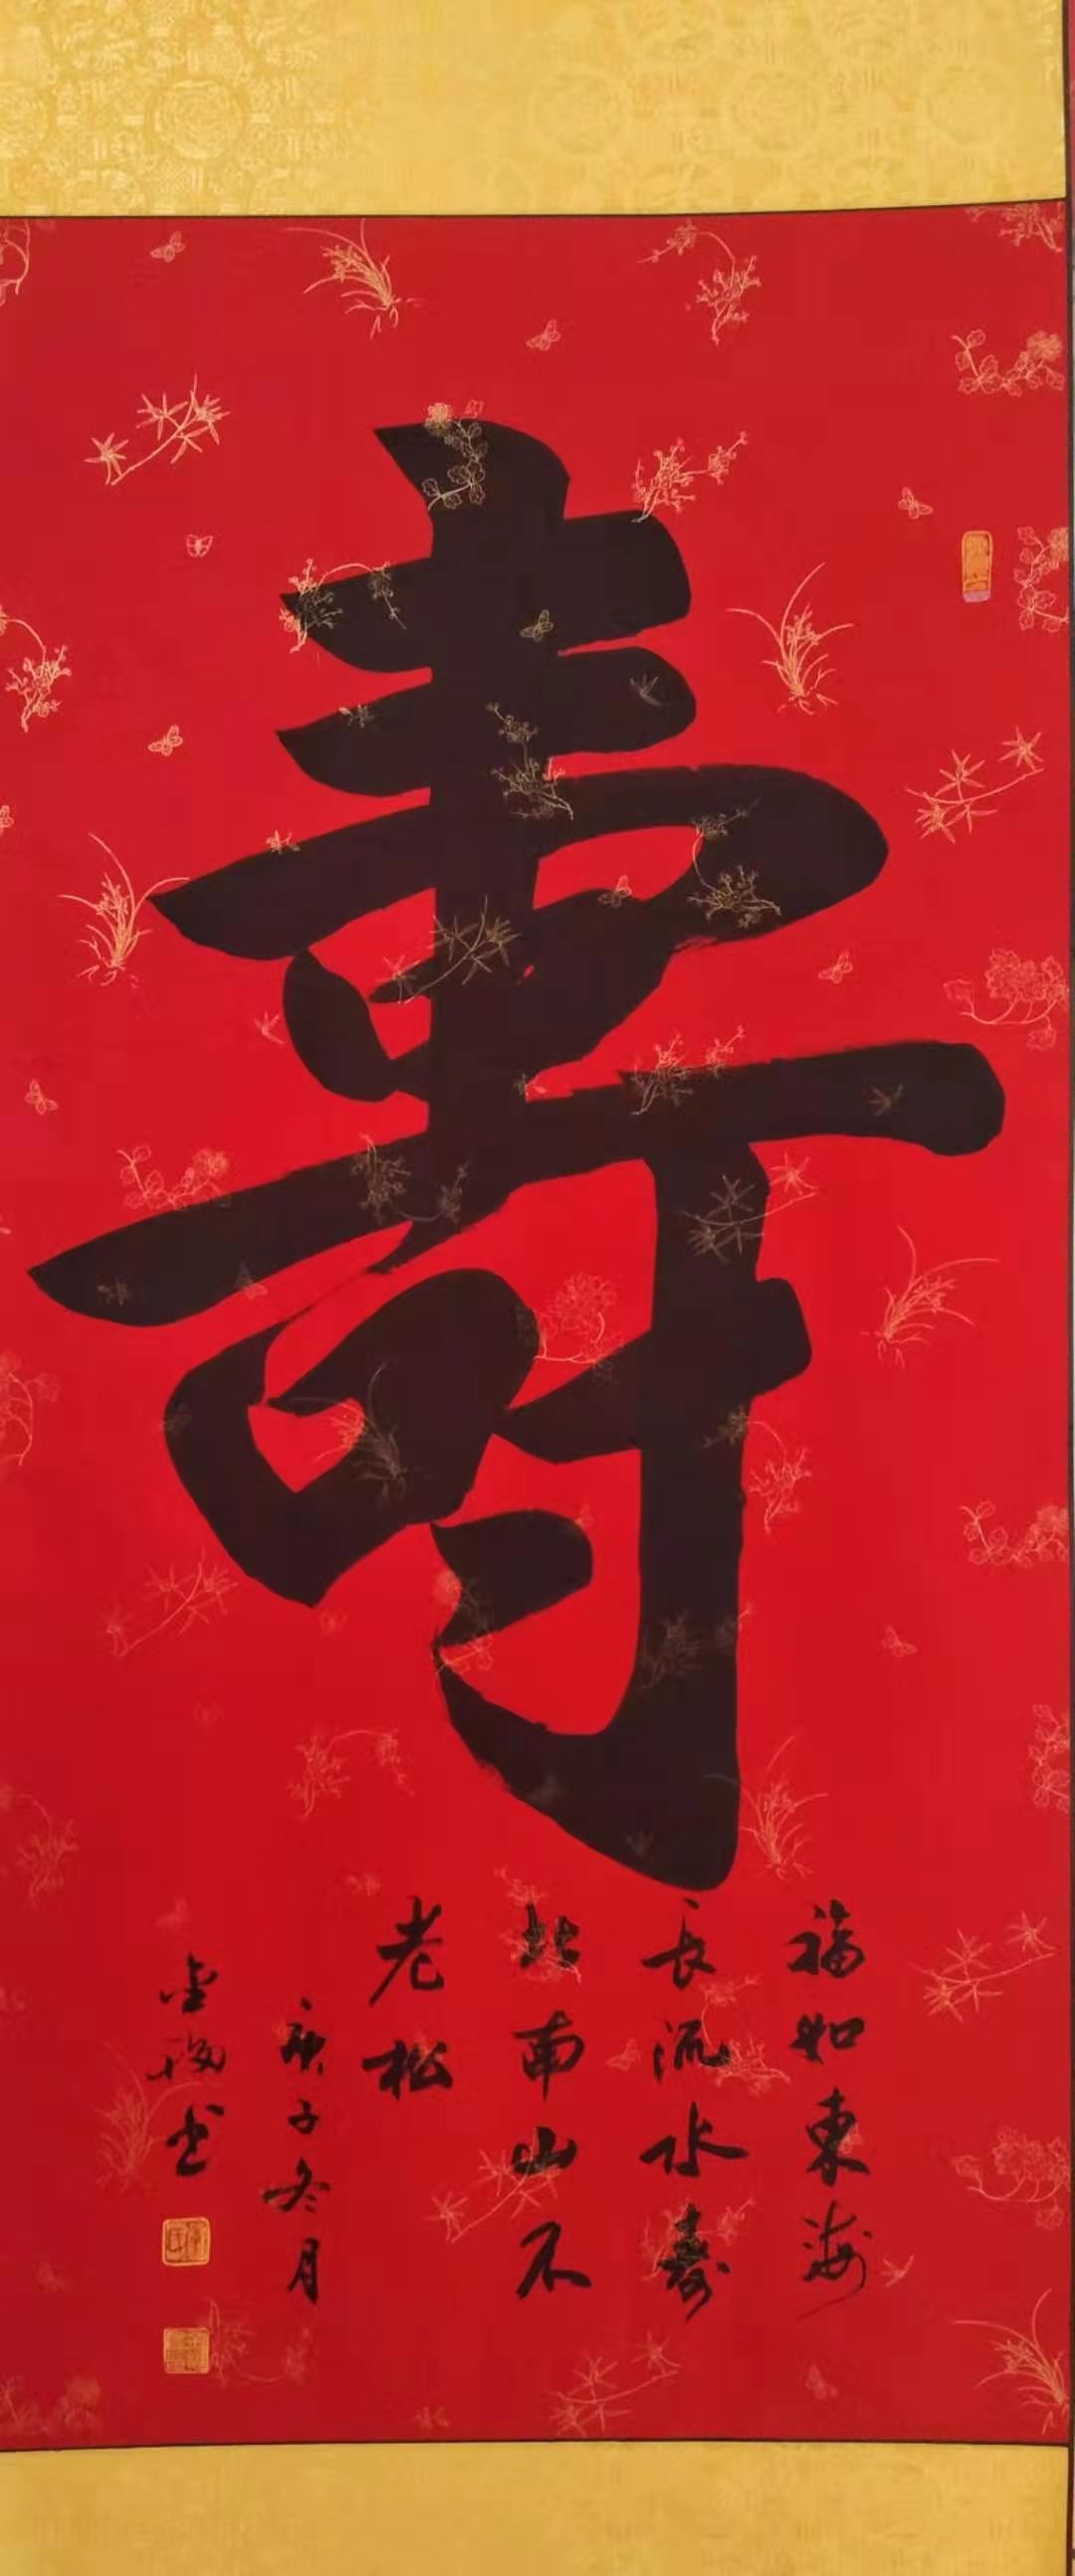 壽
福如東海
長流水壽
比南山不
老松
庚子冬月
书